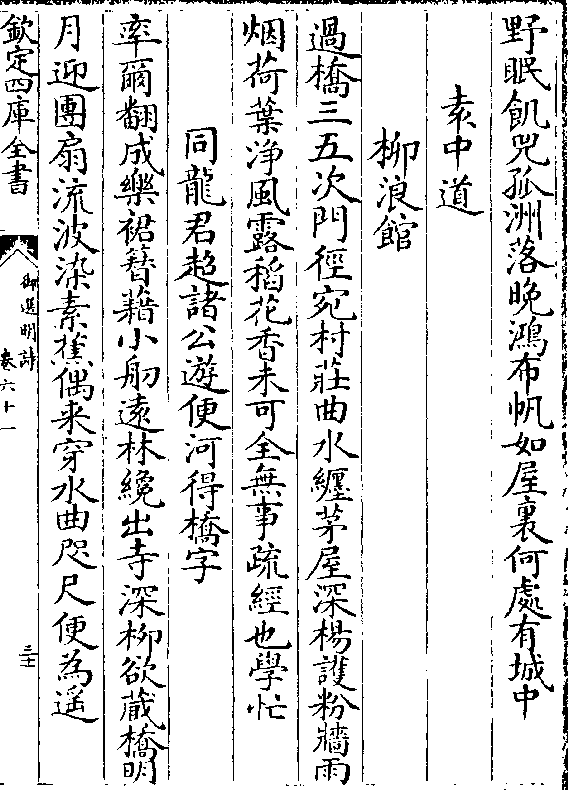 野眠飢兕孤洲落晩鴻布帆如屋裏何處有城中
袁中道
柳浪館
過橋三五次門徑宛村莊曲水纒茅屋深楊護粉牆雨
烟荷葉浄風露稻花香未可全無事疏經也學忙
同龍君超諸公遊便河得橋字
率爾翻成樂裙簪藉小舠遠林纔出寺深柳欲蔵橋明
月迎團扇流波染素蕉偶来穿水曲咫尺便為遥
欽定四庫全書
御選明詩
卷六十一
三十